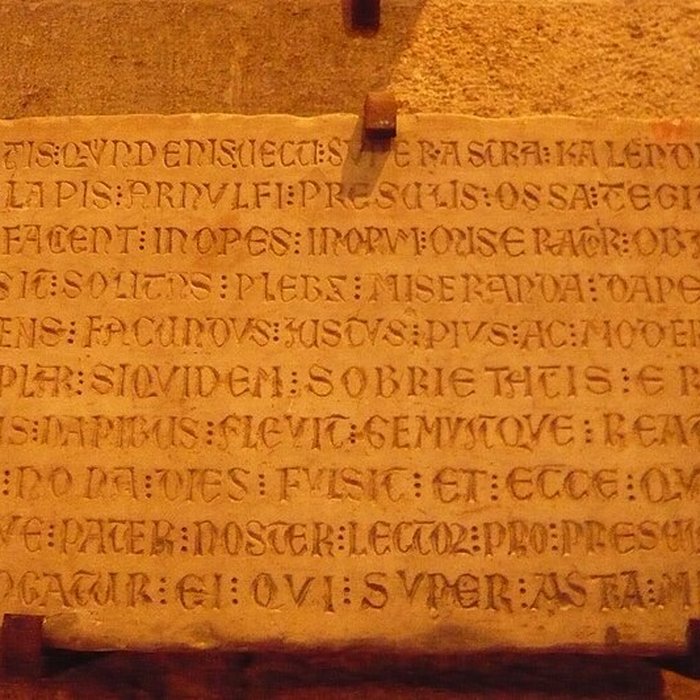 TIS⁝QVNDENIS⁝VECTI⁝SVPER⁝ASTRA⁝KALEND
LAPIS⁝ARNVLFI⁝PRESULIS⁝OSSA⁝TEGI
FACENT⁝INOPES⁝INOPVM⁝QUISERATOR⁝OBT
SIT⁝SOLITUS⁝PLEBS⁝MISERANDA⁝DAPE
ENS⁝FACUNDVS⁝IUSTVS⁝PIVS⁝AC⁝MODE
PLAR⁝SIQVIDEM⁝SOBRIETATIS⁝ER
IS⁝DAPIBUS⁝FLEVIT⁝GEMVITQVE⁝REAT
⁝NONA⁝DIES⁝FVLSIT⁝ET⁝ECCE⁝QV
VE⁝PATER⁝NOSTER⁝LECTOR⁝PRO⁝PRESU
NGATUR⁝EI⁝QVI⁝SVPER⁝ASTRA⁝M